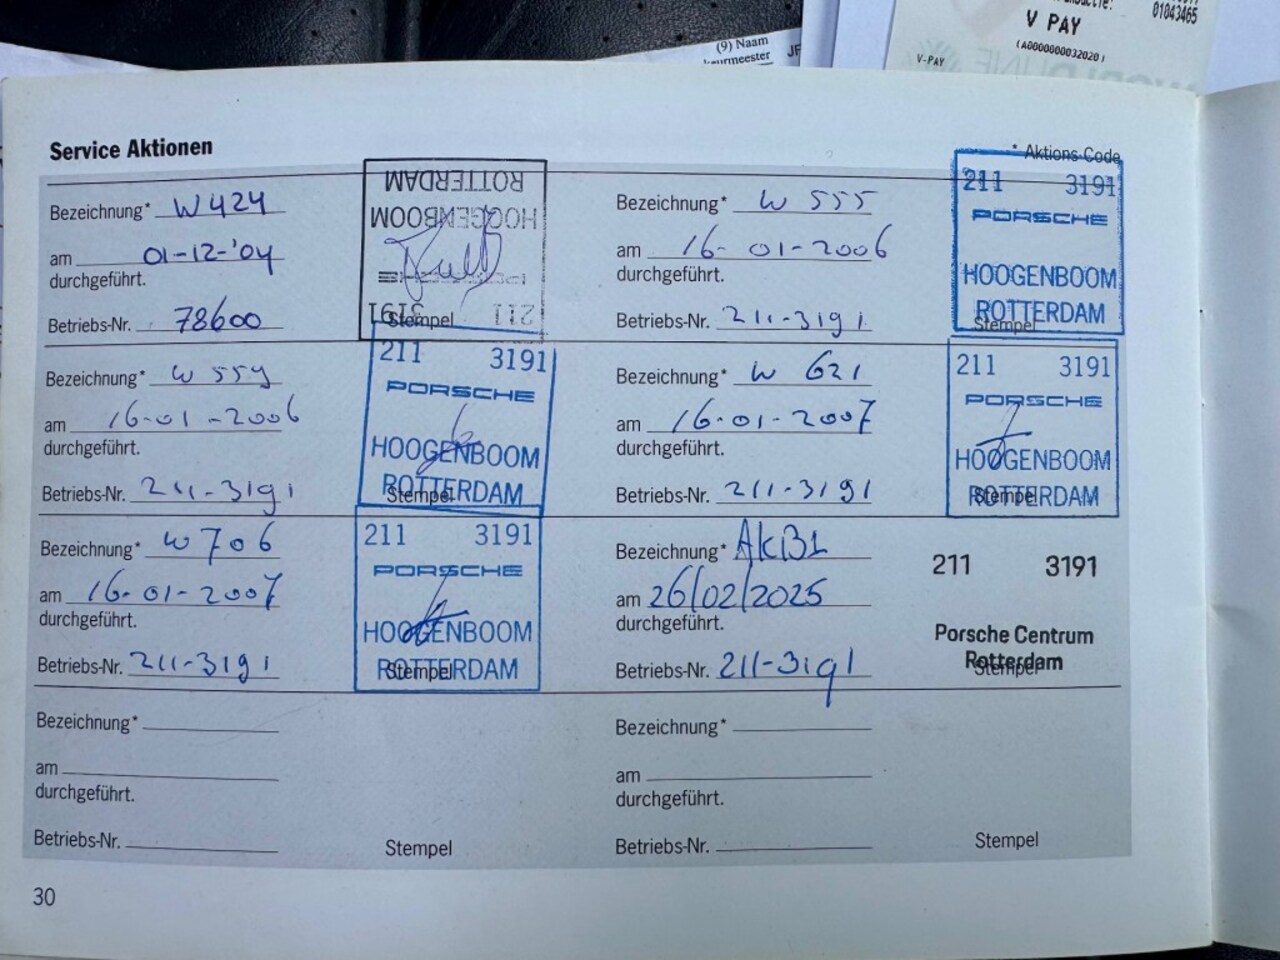 (9) Naam
V PAY
01043465
(A0000000032020)
V-PAY
Service Aktionen
* Aktions-Code
Bezeichnung* W424
am 01-12-'04
durchgeführt.
Betriebs-Nr. 78600
Stempel
211 3191
PORSCHE
HOOGENBOOM
ROTTERDAM
Bezeichnung* W 555
am 16-01-2006
durchgeführt.
Betriebs-Nr. 211-3191
Stempel
211 3191
PORSCHE
HOOGENBOOM
ROTTERDAM
Bezeichnung* W 559
am 16-01-2006
durchgeführt.
Betriebs-Nr. 211-3191
Stempel
211 3191
PORSCHE
HOOGENBOOM
ROTTERDAM
Bezeichnung* W 621
am 16-01-2007
durchgeführt.
Betriebs-Nr. 211-3191
Stempel
211 3191
PORSCHE
HOOGENBOOM
ROTTERDAM
Bezeichnung* W706
am 16-01-2007
durchgeführt.
Betriebs-Nr. 211-3191
Stempel
211 3191
PORSCHE
HOOGENBOOM
ROTTERDAM
Bezeichnung* AKB1
am 26/02/2025
durchgeführt.
Betriebs-Nr. 211-3191
Stempel
211 3191
Porsche Centrum
Rotterdam
Bezeichnung*
am
durchgeführt.
Betriebs-Nr.
Stempel
Bezeichnung*
am
durchgeführt.
Betriebs-Nr.
Stempel
30